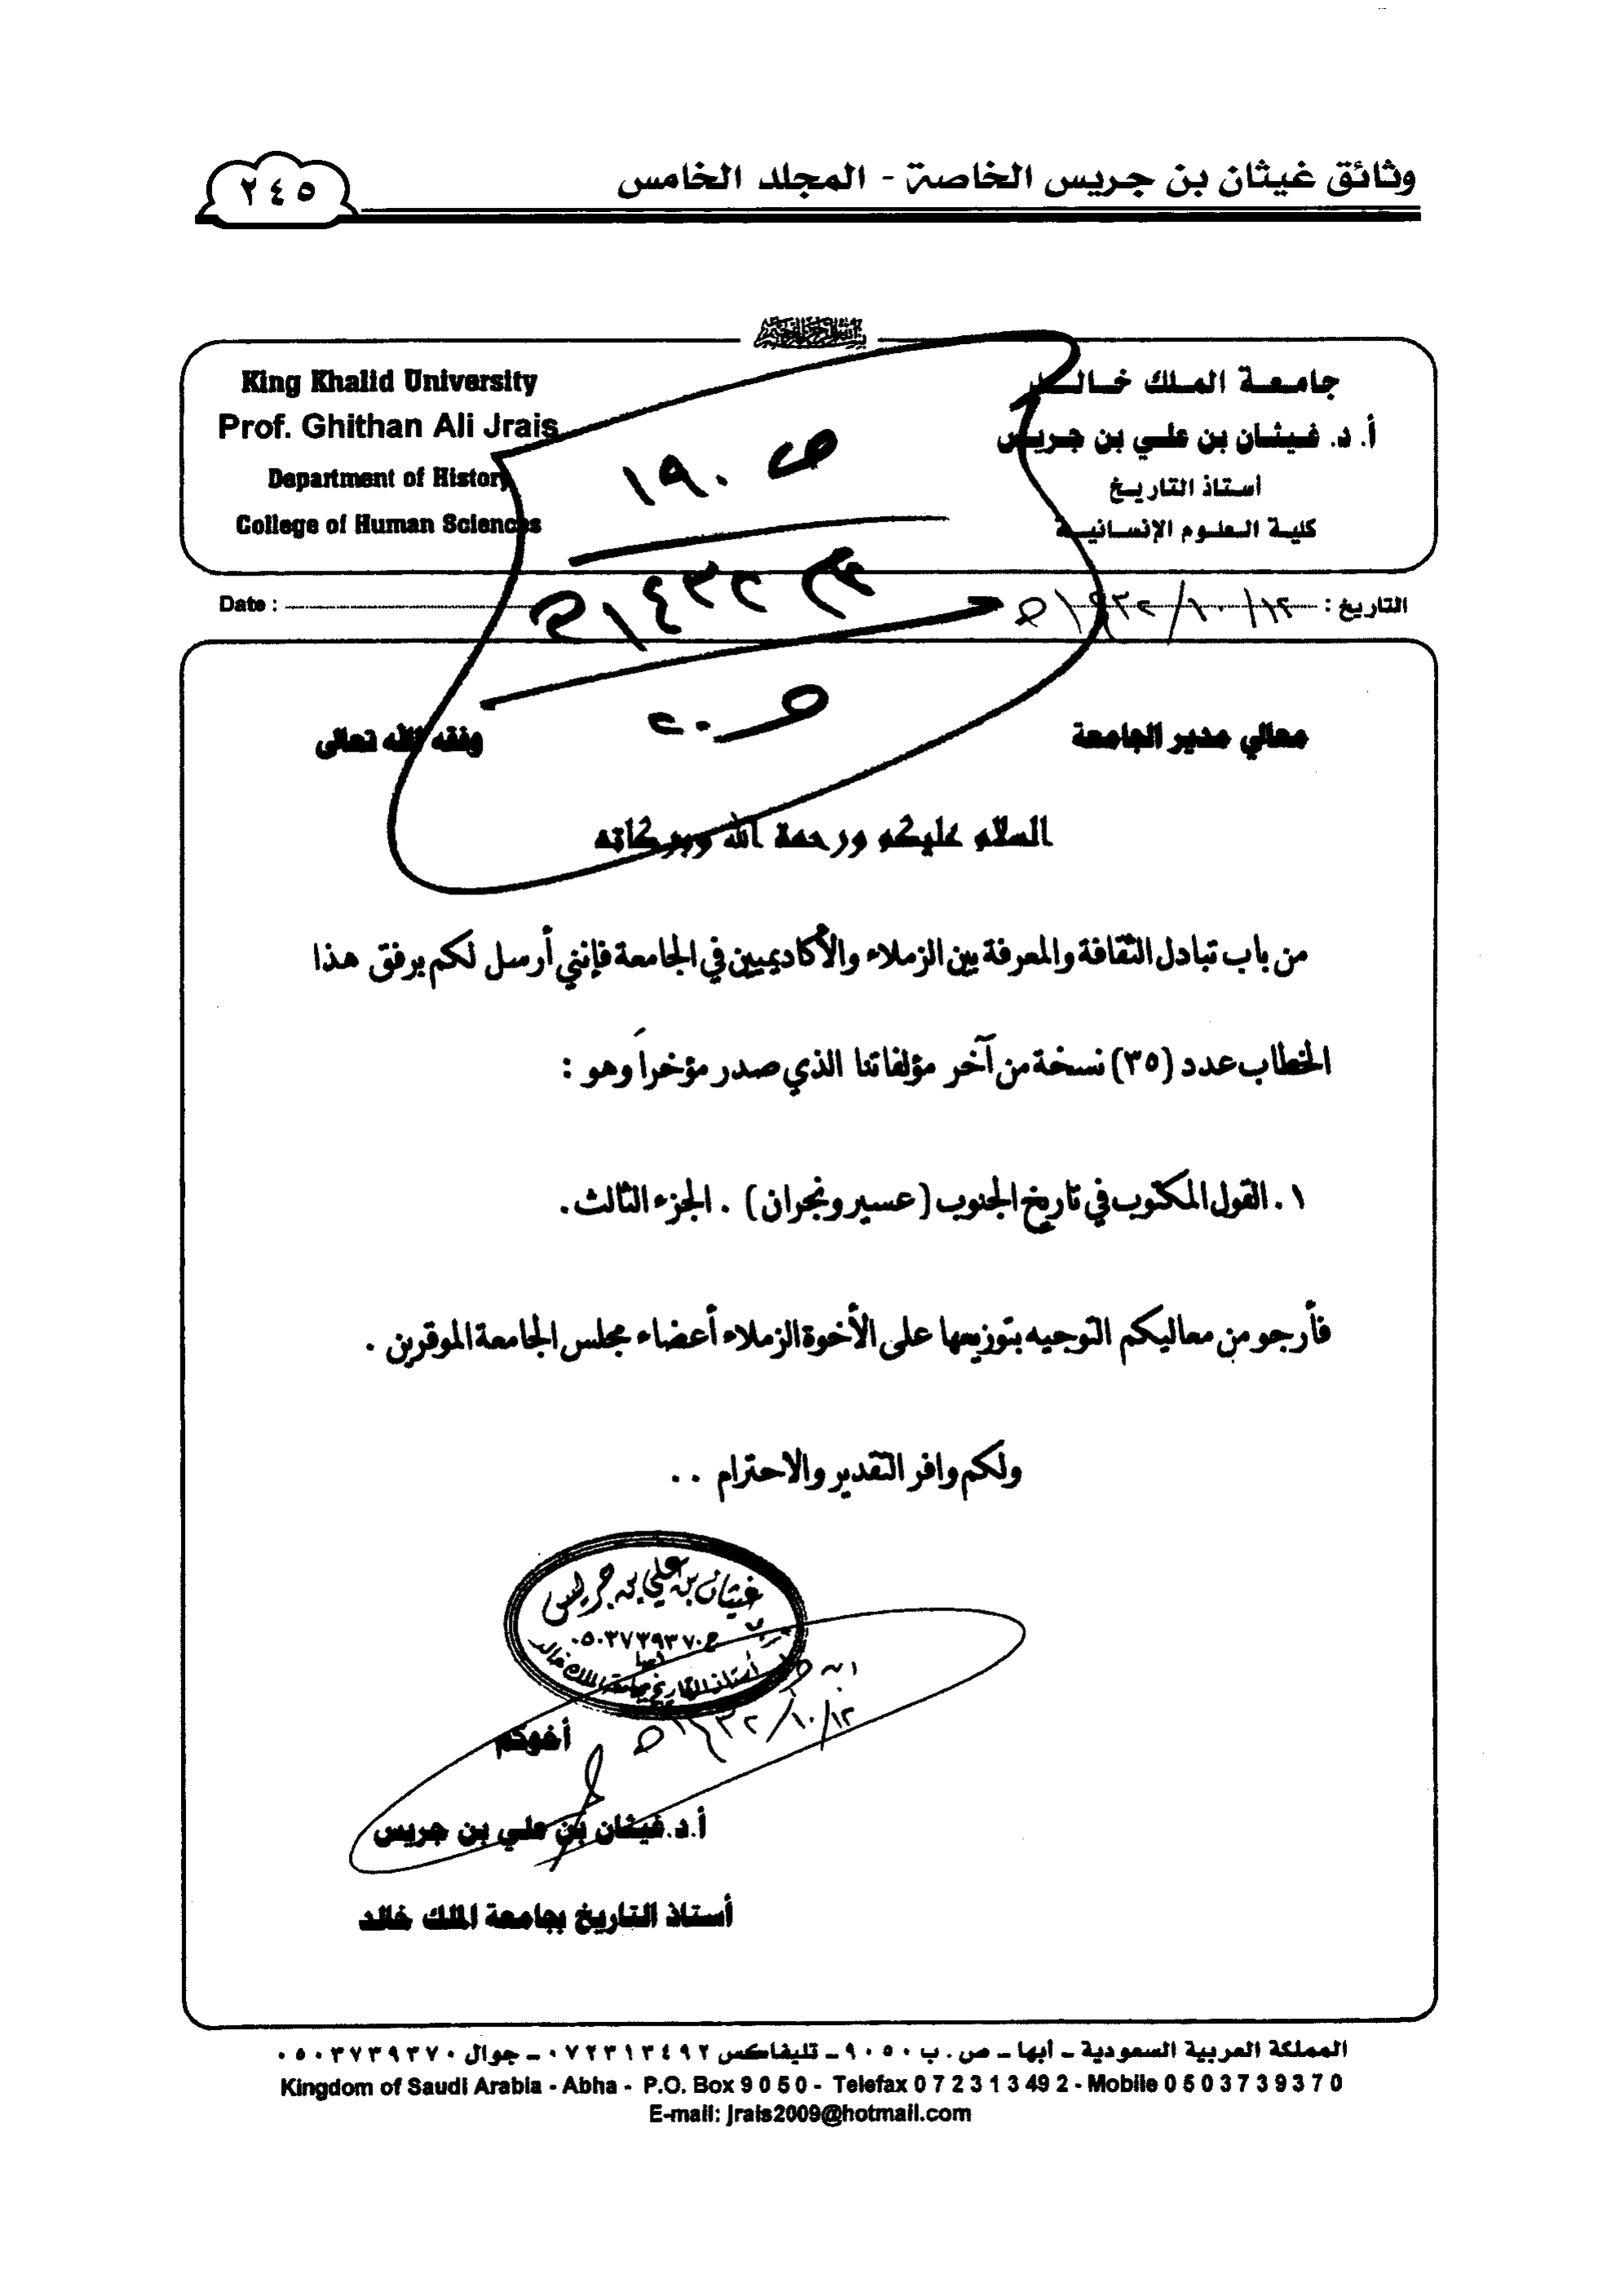 وثائق غيثان بن جريس الخاصة - المجلد الخامس
٢٤٥
جامعة الملك خالد
أ. د. غيثان بن علي بن جريس
أستاذ التاريخ
كلية العلوم الإنسانية
King Khalid University
Prof. Ghithan Ali Jrais
Department of History
College of Human Sciences
ص ١٩٠
عام ١٤٣٢هـ
ص ٢٠
التاريخ : ١٢/١٠/١٤٣٢هـ
Date :
معالي مدير الجامعة وفقه الله تعالى
السلام عليكم ورحمة الله وبركاته
من باب تبادل الثقافة والمعرفة بين الزملاء والأكاديميين في الجامعة فإنني أرسل لكم برفق هذا
الخطاب عدد (٣٥) نسخة من آخر مؤلفاتنا الذي صدر مؤخراً وهو :
١. القول المكتوب في تاريخ الجنوب (عسير ونجران) . الجزء الثالث .
فأرجو من معاليكم التوجيه بتوزيعها على الأخوة الزملاء أعضاء مجلس الجامعة الموقرين .
ولكم وافر التقدير والاحترام . .
غيثان بن علي بن جريس
ج ٠٥٠٣٧٣٩٣٧٠
أبها
أستاذ التاريخ بجامعة الملك خالد
١٢/١٠/١٤٣٢هـ
أخوكم
أ.د. غيثان بن علي بن جريس
أستاذ التاريخ بجامعة الملك خالد
المملكة العربية السعودية - أبها - ص . ب ٩٠٥٠ - تليفاكس ٠٧٢٣١٣٤٩٢ - جوال ٠٥٠٣٧٣٩٣٧٠
Kingdom of Saudi Arabia - Abha - P.O. Box 9 0 5 0 - Telefax 0 7 2 3 1 3 49 2 - Mobile 0 5 0 3 7 3 9 3 7 0
E-mail: Jrais2009@hotmail.com